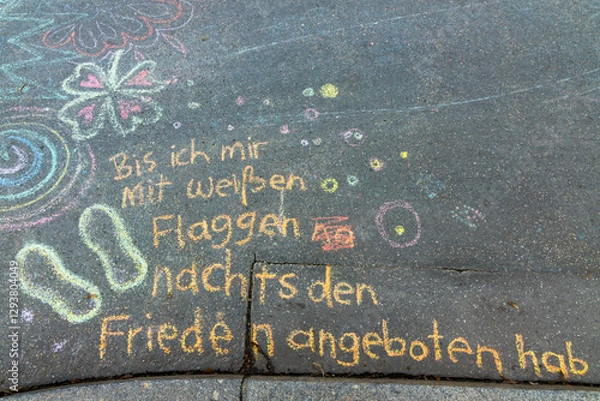 Bis ich mir
Mit weißen
Flaggen
nachts den
Frieden angeboten hab
Adobe Stock | #1293804049